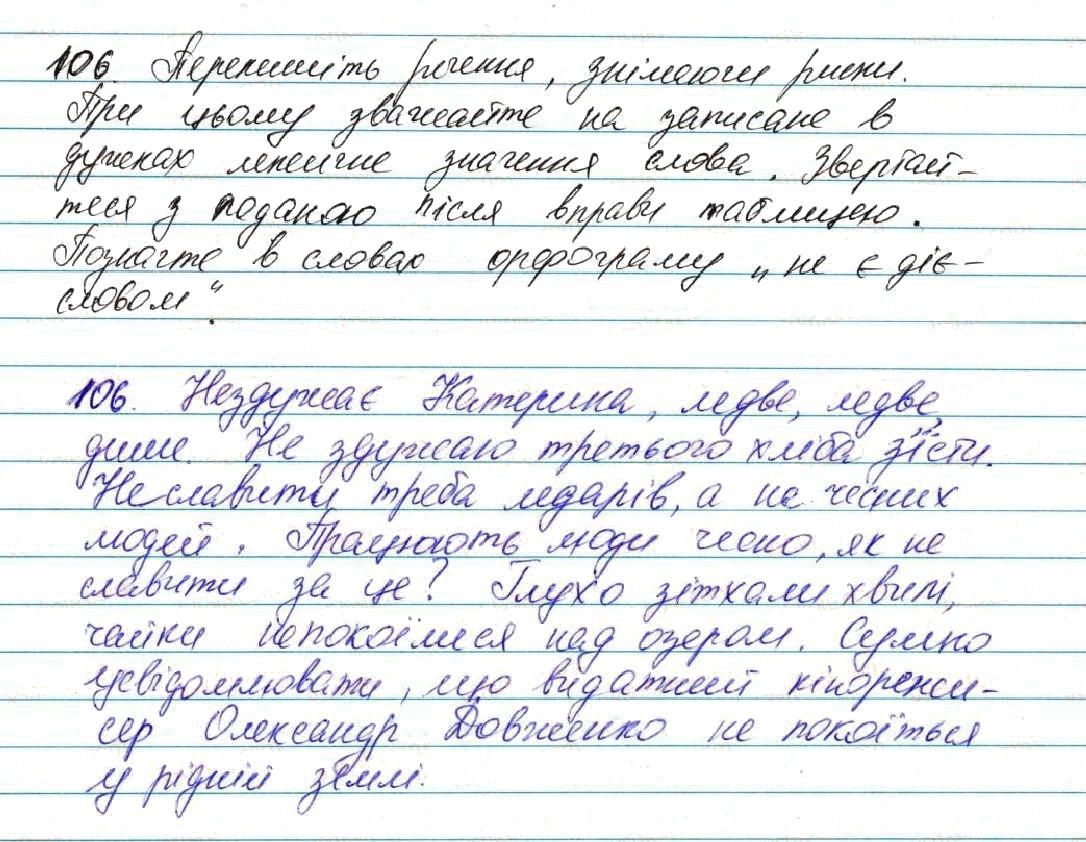 106. Перепишіть речення, знімаючи риски.
При цьому зважайте на записане в
дужках лексичне значення слова. Звертай-
теся з поданою після вправи таблицею.
Позначте в словах орфограму „не є діє-
словом“.
106. Нездужає Катерина, ледве, ледве
дише. Не здужаю третього хліба з'їсти.
Неславити треба ледарів, а не чесних
людей. Працюють люди чесно, як не
славити за це? Глухо зітхали хвилі,
чайки непокоїлися над озером. Сумно
усвідомлювати, що видатний кінорежи-
сер Олександр Довженко не покоїться
у рідній землі.